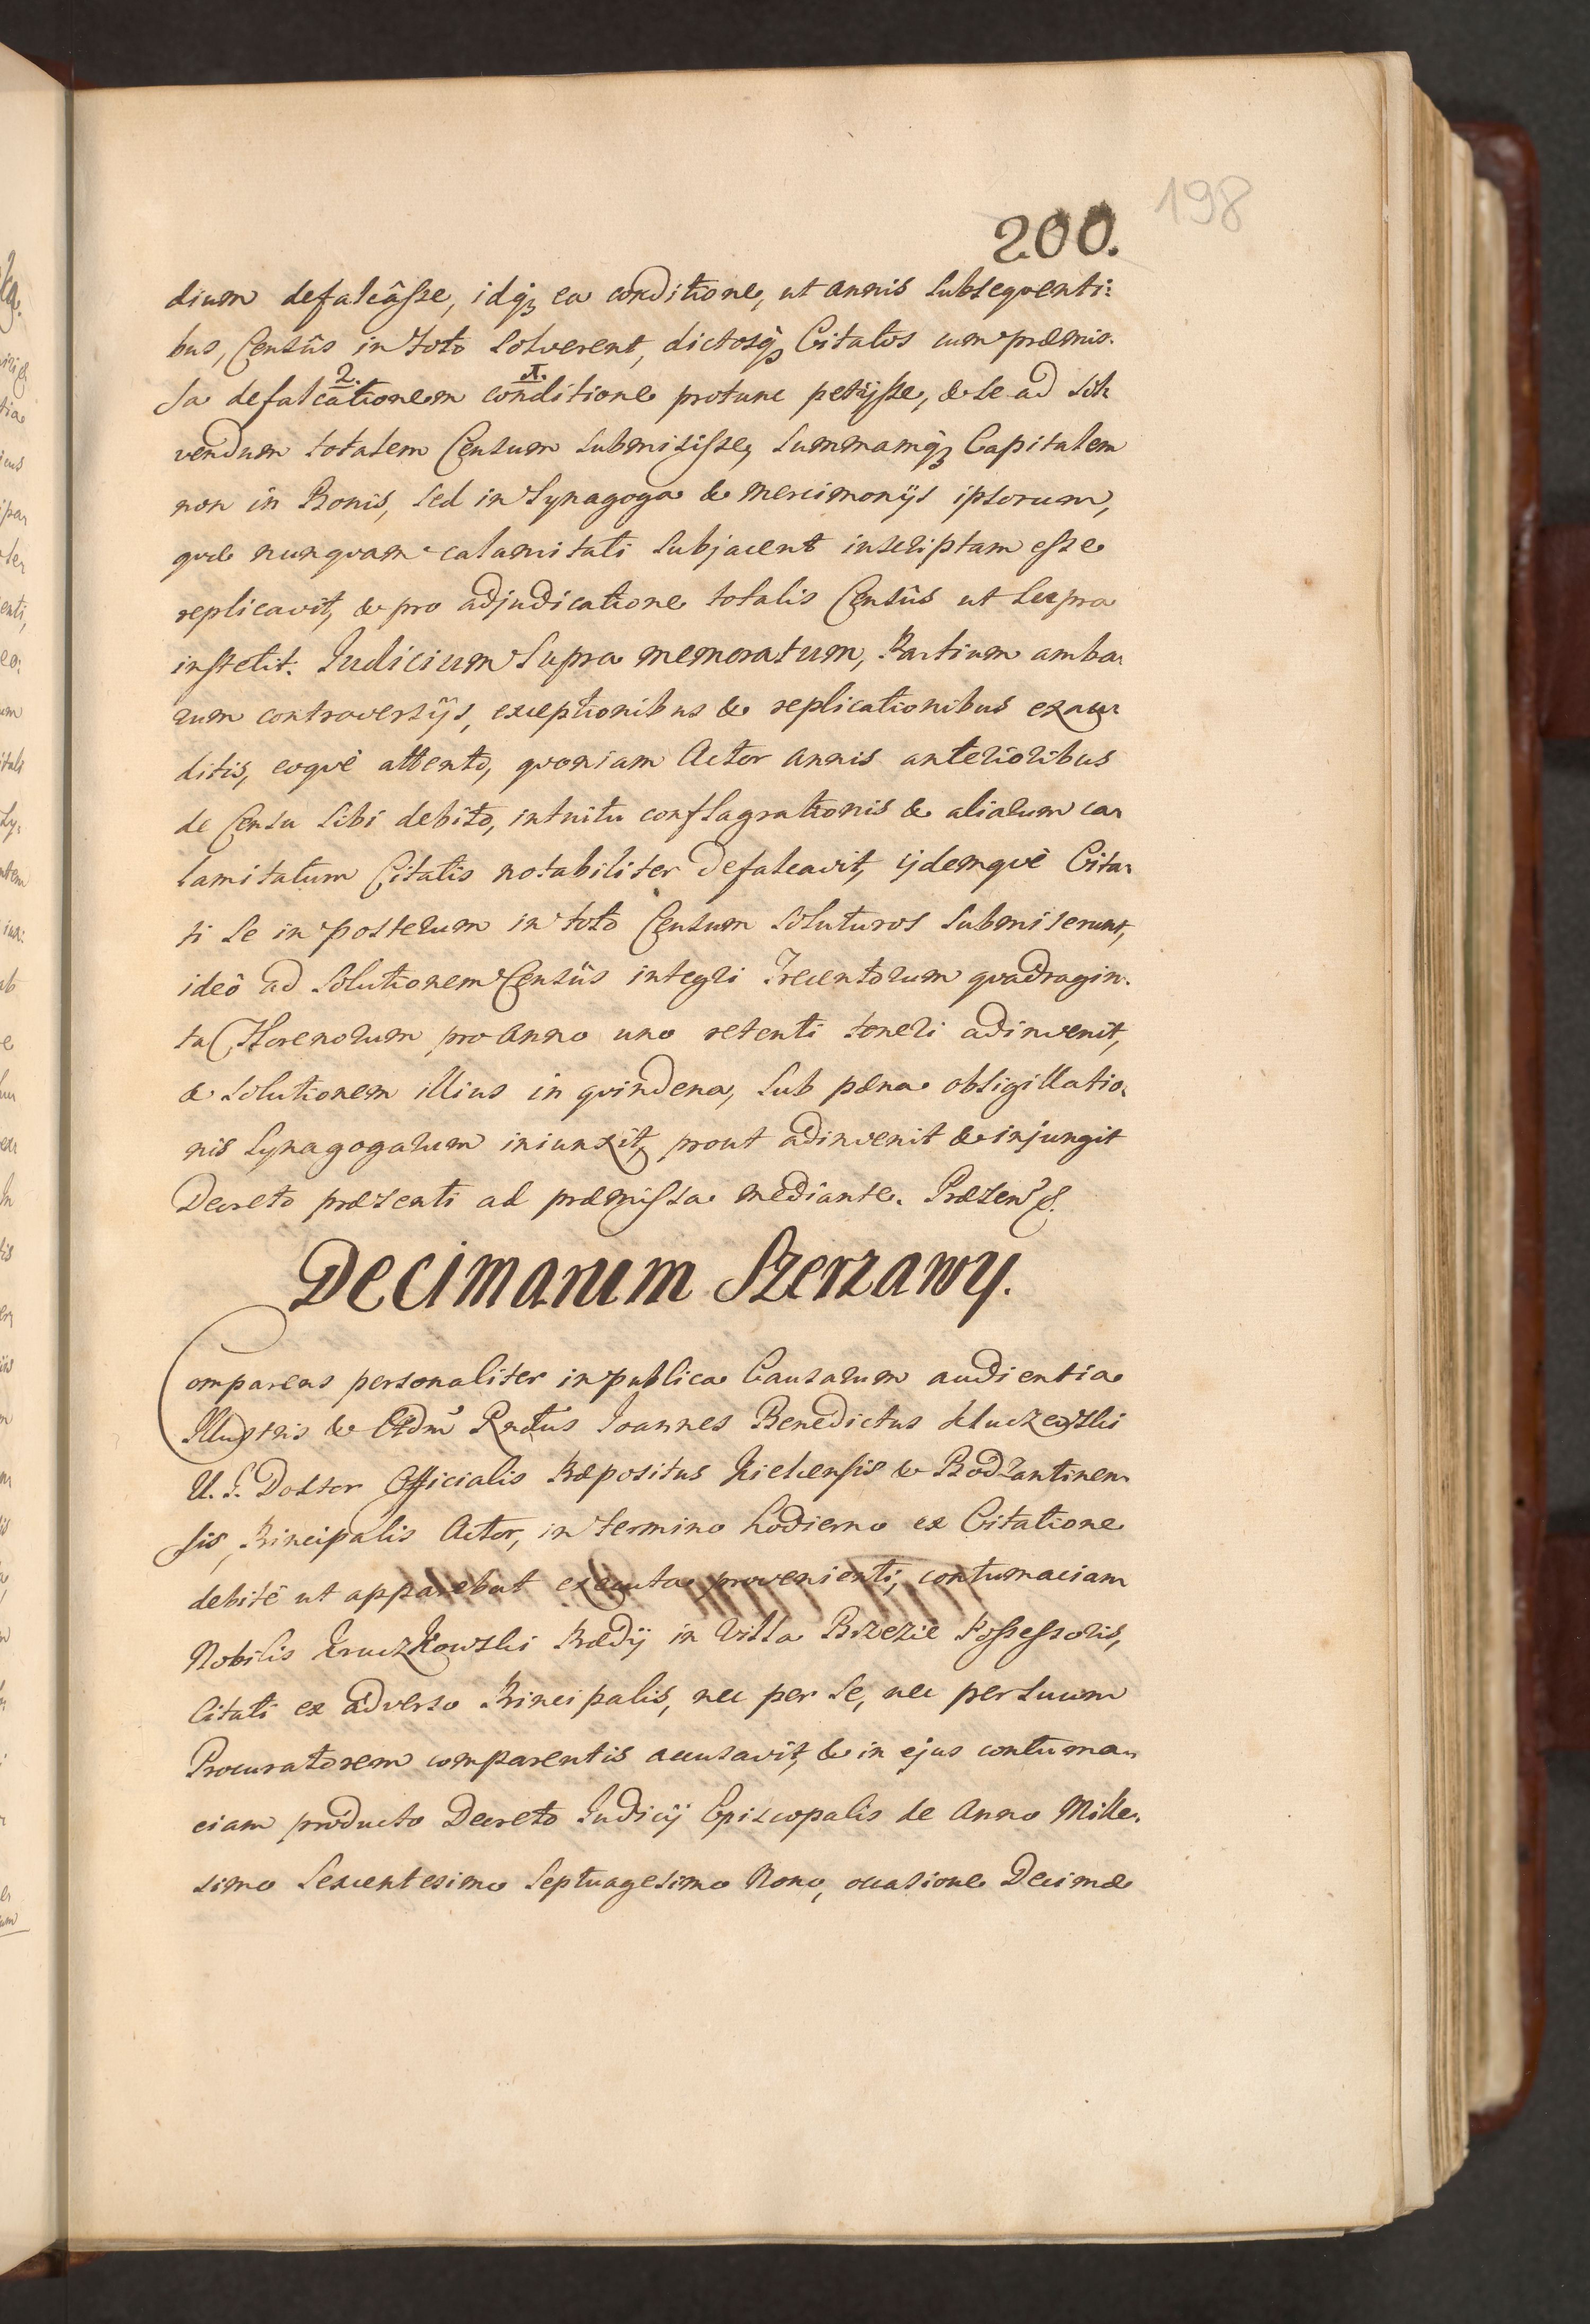 198
200.
dium defalcâsse, idq́ꝫ ea conditione, ut annis subsequenti:
bus, Censûs in toto solverent, dictosq́ꝫ Citatos cum præmis:
2. 1.
sa defalcationem conditione protunc petijsse, & se ad sol:
vendum totalem Censum submisisse, summamq́ꝫ Capitalem
non in Bonis, sed in Synagoga & mercimonijs ipsorum,
quæ nunquam calamitati subjacent inscriptam esse
replicavit, & pro adjudicatione totalis Censûs ut supra
institit. Judicium supra memoratum, Partium amba:
rum controversijs, exceptionibus & replicationibus exau:
ditis, eoquè attento, quoniam Actor annis anterioribus
de Censu sibi debito, intuitu conflagrationis & aliarum ca:
lamitatum Citatis notabiliter defalcavit, ijdemquè Cita:
ti se in posterum in toto Censum soluturos submiserunt,
ideò ad solutionem Censûs integri Trecentorum quadragin:
ta Florenorum pro Anno uno retenti teneri adinvenit,
& solutionem illius in quindena, sub pæna obsigillatio:
nis Synagogarum iniunxit, prout adinvenit & injungit
Decreto præsenti ad præmissa mediante. Præsen: &.
Decimarum Szerzawy.
Comparens personaliter in publica Causarum audientia
Illustris & Adm̃ Rndus Joannes Benedictus Kluczewski
U. J. Doctor Officialis Præpositus Kielcensis & Bodzantinen:
sis, Principalis Actor, in termino hodierno ex Citatione
debitè ut apparebat executa provenienti, contumaciam
Nobilis Kruczkowski Prædij in Villa Brzezie Possessoris,
Citati ex adverso Principalis, nec per se, nec per suum
Procuratorem comparentis accusavit, & in ejus contuma:
ciam producto Decreto Judicij Episcopalis de Anno Mille:
simo Sexcentesimo Septuagesimo Nono, occasione Decimæ